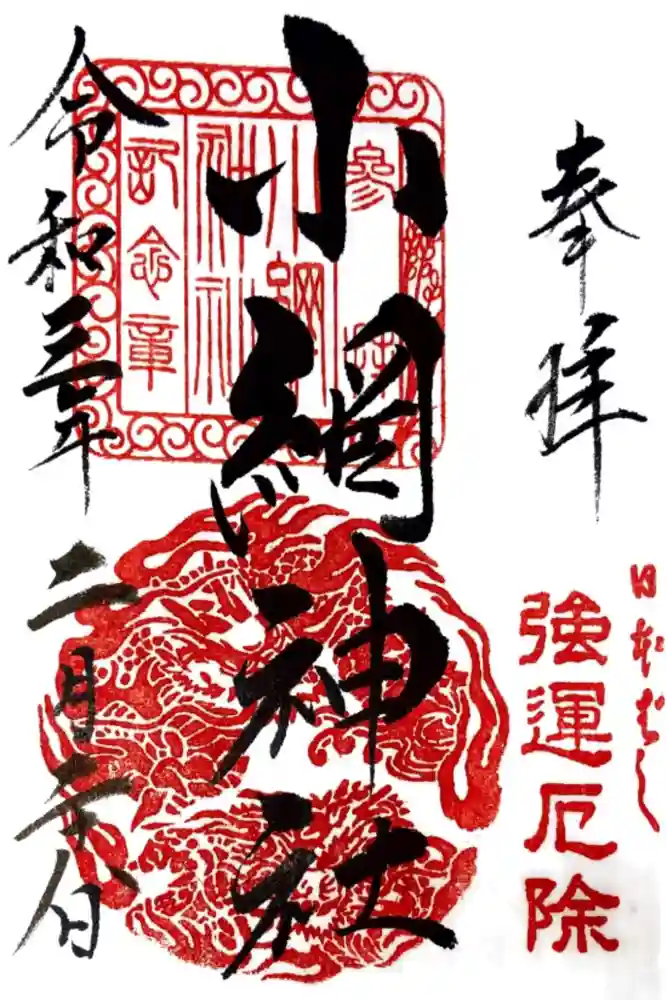 奉拝
日本ばし
強運厄除
小網神社
令和三年二月二十八日
參拜
小網
神社
記念章